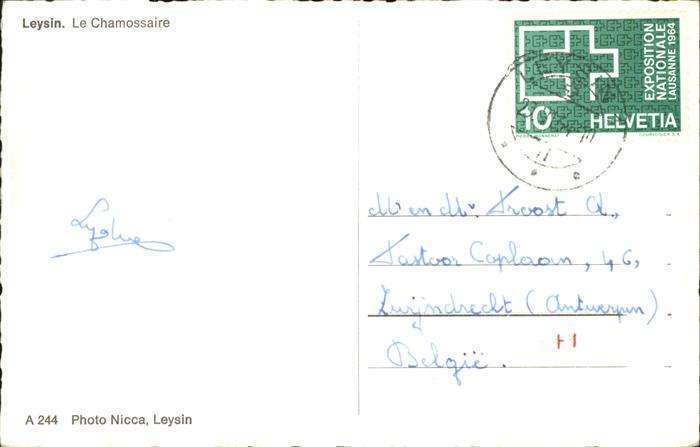 Leysin. Le Chamossaire
EXPOSITION
NATIONALE
LAUSANNE 1964
10 HELVETIA
COURVOISIER S.A.
Mr en Mv. Troost A.,
Pastoor Coplaan, 46,
Zwijndrecht (Antwerpen)
België.
A 244 Photo Nicca, Leysin